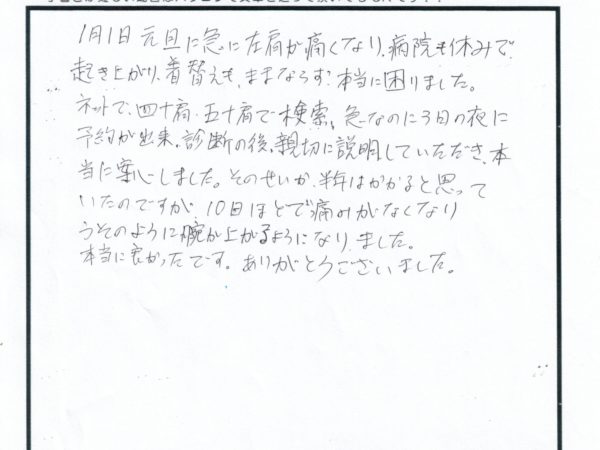 1月1日 元旦に急に左肩が痛くなり、病院も休みで
起き上がり、着替えも、ままならず、本当に困りました。
ネットで、四十肩、五十肩で検索、急なのに3日の夜に
予約が出来、診断の後、親切に説明していただき、本
当に安心しました。そのせいか、半年はかかると思って
いたのですが、10日ほどで痛みがなくなり
うそのように腕が上がるようになり、ました。
本当に良かったです。ありがとうございました。